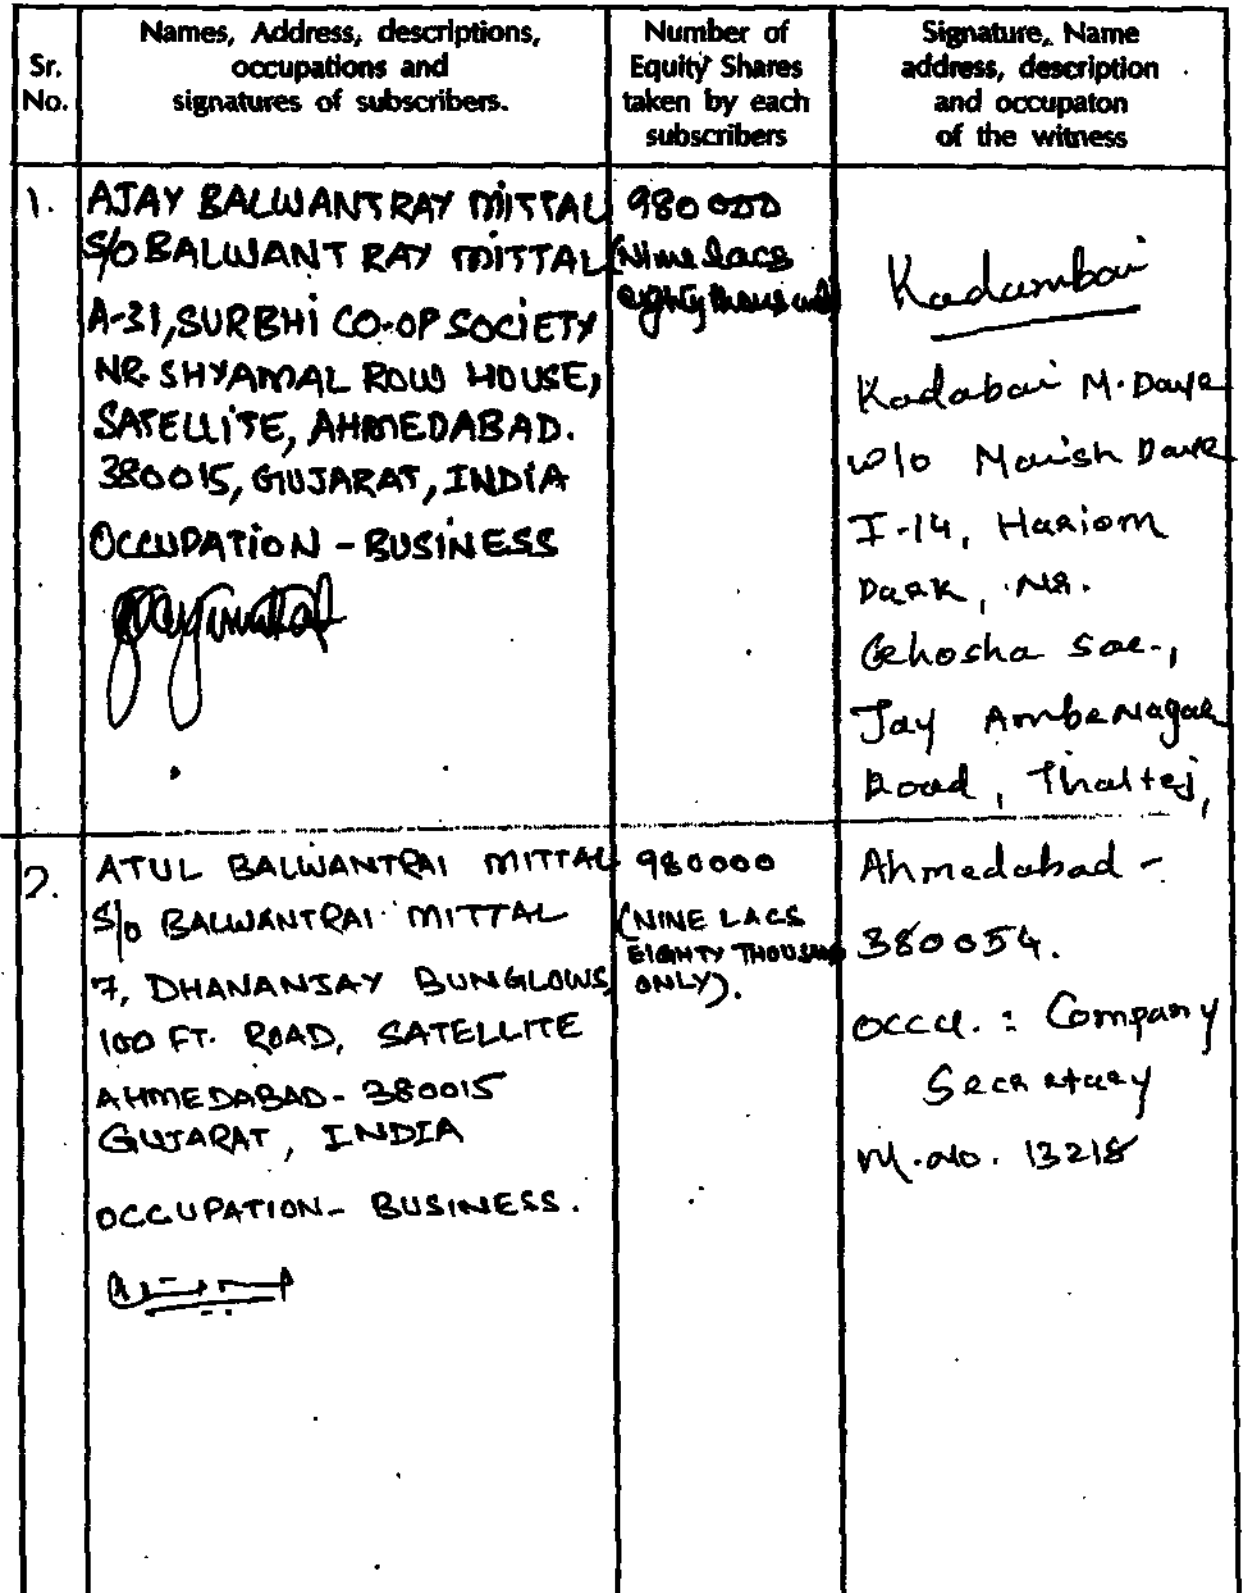 Sr.
No.
Names, Address, descriptions,
occupations and
signatures of subscribers.
Number of
Equity Shares
taken by each
subscribers
Signature, Name
address, description
and occupaton
of the witness
1.
AJAY BALWANTRAY MITTAL
S/O BALWANT RAY MITTAL
A-31, SURBHI CO-OP SOCIETY
NR. SHYAMAL ROW HOUSE,
SATELLITE, AHMEDABAD.
380015, GUJARAT, INDIA
OCCUPATION - BUSINESS
980000
(Nine lacs
eighty thousand
Kadambari
Kadabari M. Dave
w/o Manish Dave
I-14, Hariom
Park, Nr.
Ghosha Soc.,
Jay Ambenagar
Road, Thaltej,
2.
ATUL BALWANTRAI MITTAL
S/o BALWANTRAI MITTAL
7, DHANANJAY BUNGLOWS,
100 FT. ROAD, SATELLITE
AHMEDABAD - 380015
GUJARAT, INDIA
OCCUPATION - BUSINESS.
980000
(NINE LACS
EIGHTY THOUSAND
ONLY).
Ahmedabad -
380054.
occu. : Company
Secretary
M. No. 13218